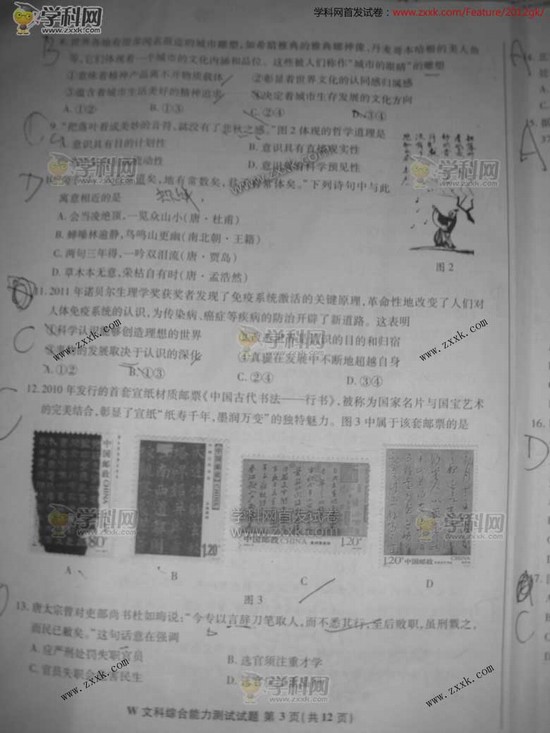 学科网首发试卷：http://www.zxxk.com/Feature/2012gk/
世界各地有很多闻名遐迩的城市雕塑，如希腊雅典的雅典娜神像、丹麦哥本哈根的美人鱼
等，它们体现着一个城市的文化内涵和品位。这些被人们称作“城市的眼睛”的雕塑
①意味着精神产品离不开物质载体 ②彰显着世界文化的认同感归属感
③蕴含着城市生活美好的精神追求 ④决定着城市生存发展的文化方向
A. ①② B. ①③ C. ②④ D. ③④
9. “把落叶看成美妙的音符，就没有了悲秋之感。”图2体现的哲学道理是
A. 意识具有目的计划性 B. 意识具有直接现实性
D. 意识具有科学预见性
矣，地有常数矣，
常体矣。”下列诗句中与此
寓意相近的是
A. 会当凌绝顶，一览众山小(唐·杜甫)
B. 蝉噪林逾静，鸟鸣山更幽(南北朝·王籍)
C. 两句三年得，一吟双泪流(唐·贾岛)
D. 草木本无意，荣枯自有时(唐·孟浩然)
图2
11. 2011年诺贝尔生理学奖获奖者发现了免疫系统激活的关键原理，革命性地改变了人们对
人体免疫系统的认识，为传染病、癌症等疾病的防治开辟了新道路。这表明
①科学认识能够创造理想的世界
认识的目的和归宿
的发展取决于认识的深化 ④真理在发展中不断地超越自身
A. ①② B. ①③ C. ②④ D. ③④
12. 2010年发行的首套宣纸材质邮票《中国古代书法——行书》，被称为国家名片与国宝艺术
的完美结合，彰显了宣纸“纸寿千年，墨润万变”的独特魅力。图3中属于该套邮票的是
中国邮政 CHINA
80
中国邮政 CHINA
1.20
中国邮政 CHINA
1.20
中国邮政
1.20
A B C D
图3
13. 唐太宗曾对吏部尚书杜如晦说：“今专以言辞刀笔取人，而不悉其行，至后败职，虽刑戮之，
而民已敝矣。”这句话意在强调
A. 应严刑处罚失职官员 B. 选官须注重才学
C. 官员失职会危害民生
W 文科综合能力测试试题 第3页(共12页)
学科网
www.zxxk.com
学科网首发试卷